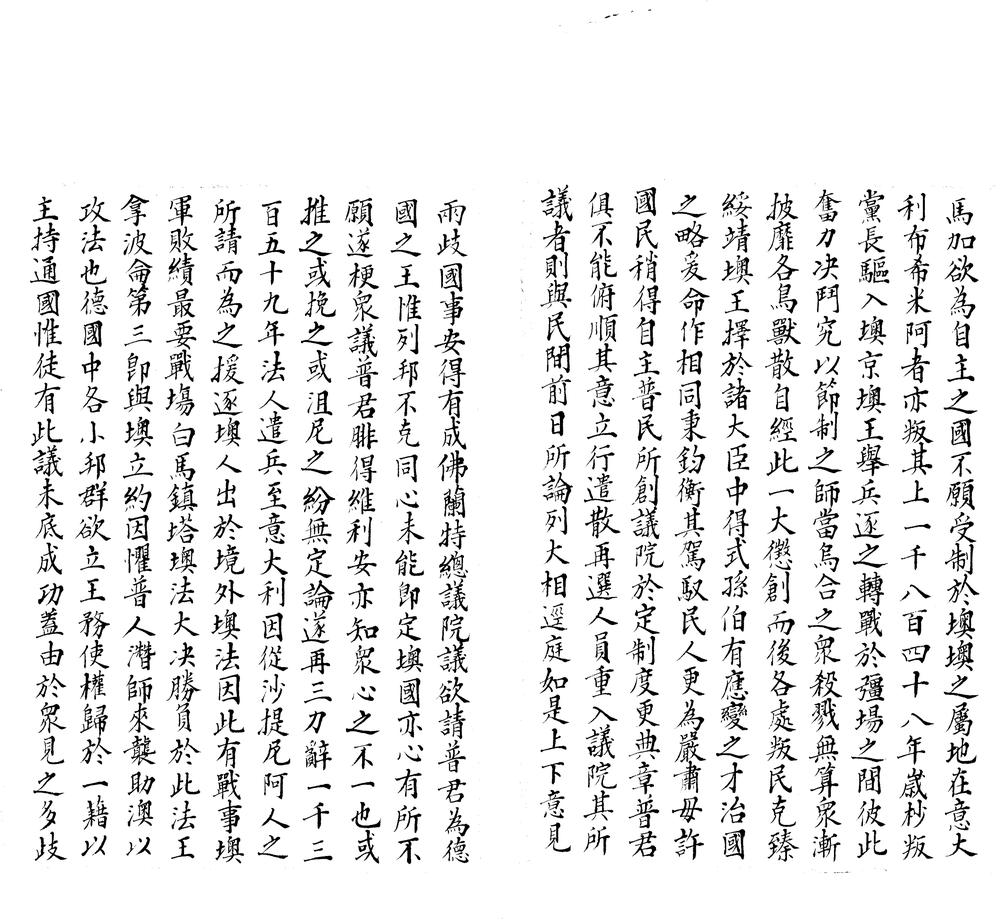 馬加欲為自主之國不願受制於墺墺之屬地在意大
利布希米阿者亦叛其上一千八百四十八年歲杪叛
黨長驅入墺京墺王舉兵逐之轉戰於彊場之間彼此
奮力决鬥究以節制之師當烏合之眾殺戮無算衆漸
披靡各鳥獸散自經此一大懲創而後各處叛民克臻
綏靖墺王擇於諸大臣中得式孫伯有應變之才治國
之略爰命作相同秉鈞衡其駕馭民人更為嚴肅毋許
國民稍得自主普民所創議院於定制度更典章普君
俱不能俯順其意立行遣散再選人員重入議院其所
議者則與民間前日所論列大相逕庭如是上下意見
兩歧國事安得有成佛蘭特總議院議欲請普君為德
國之王惟列邦不克同心未能即定墺國亦心有所不
願遂梗衆議普君腓得維利安亦知衆心之不一也或
推之或挽之或沮尼之紛無定論遂再三力辭一千三
百五十九年法人遣兵至意大利因從沙提尼阿人之
所請而為之援逐墺人出於境外墺法因此有戰事墺
軍敗績最要戰塲白馬鎮塔墺法大决勝負於此法王
拿波侖第三卽與墺立約因懼普人潛師來襲助澳以
攻法也德國中各小邦群欲立王務使權歸於一藉以
主持通國惟徒有此議未底成功蓋由於衆見之多歧